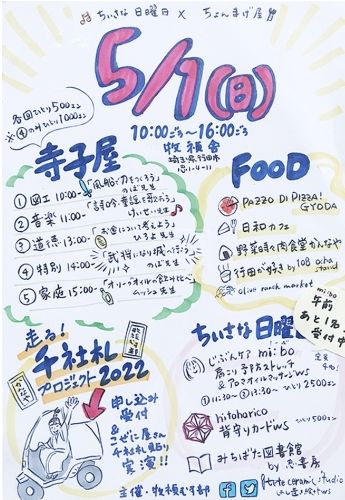 ちいさな日曜日 × ちょんまげ屋
5/1(日)
10:00ごろ~16:00ごろ
牧禎舎
埼玉県行田市
忍1-4-11
各回ひとり500エン
※④のみひとり1000エン
寺子屋
① 図工 10:00~
のば先生
② 音楽 11:00~
けいせい先生
③ 道徳 13:00~ 「お金について考えよう」
ひろよ先生
④ 特別 14:00~ 「武将になり城へ行こう」
のぼ先生
⑤ 家庭 15:00~ 「オリーブオイルの飲み比べ」
ムッシュ先生
FOOD
PAZZO DI PIZZA!
GYODA
日和カフェ
野菜時々肉食堂かんなや
行田が好き by 10B ocha stand
olive ranch market
mii:bo
午前
あと1名
受付中
走る!
千社札
プロジェクト2022
申し込み
受付
&
こぜに屋さん
千社札貼り
実演!!
主催・牧禎舎
ちいさな日曜
じぶんケア mii:bo
肩こり予防ストレッチ
&アロマオイルマッサージWS
① 11:30~ ② 13:30~ ひとり2500エン
定員
hitoharico
背守りカードWS
ひとり500エン
みちばた図書館
by 忍書房